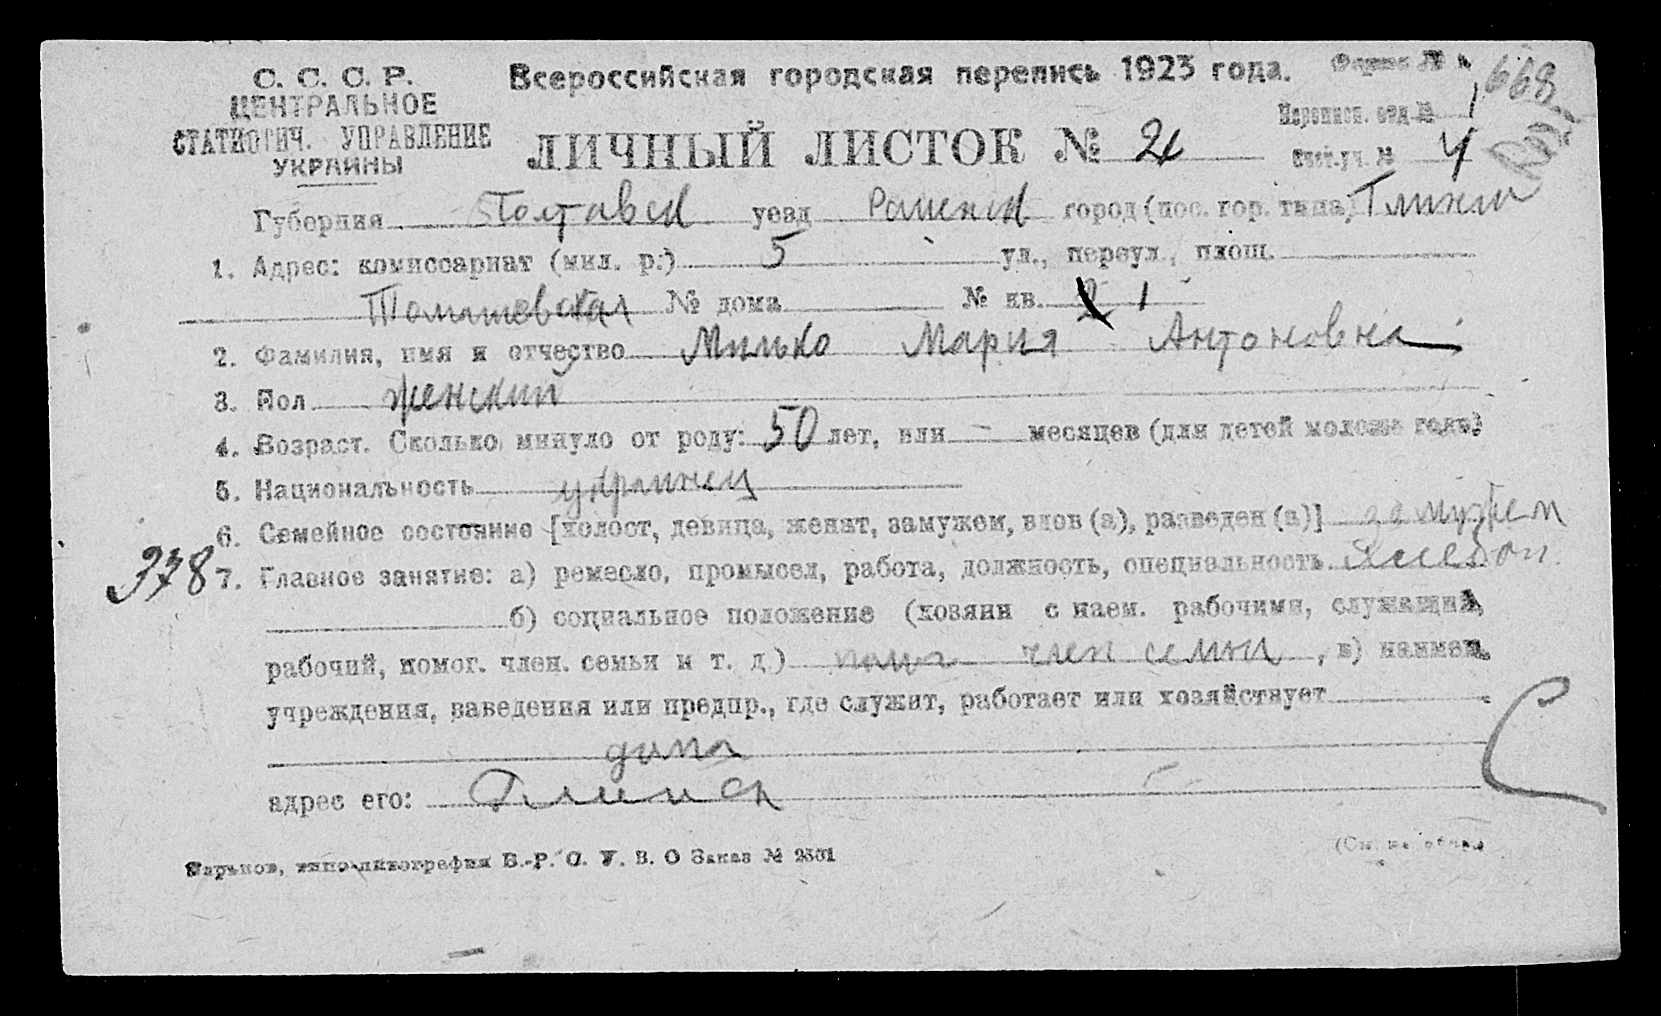 С. С. С. Р.
ЦЕНТРАЛЬНОЕ
СТАТИСТИЧ. УПРАВЛЕНИЕ
УКРАИНЫ
Всероссийская городская перепись 1923 года.
Форма №
668
Переписн. отд № 1
ЛИЧНЫЙ ЛИСТОК № 2
Счет.уч. № 4
Губерния Полтавск уезд Роменск город (пос. гор. типа) Глинск
1. Адрес: комиссариат (мил. р.) 5 ул., переул., площ.
№ дома № кв. 1
2. Фамилия, имя и отчество Милько Мария Антоновна
3. Пол женский
4. Возраст. Сколько минуло от роду: 50 лет, или - месяцев (для детей моложе года)
5. Национальность украинец
6. Семейное состояние [холост, девица, женат, замужем, вдов (а), разведен (а)] замужем
7. Главное занятие: а) ремесло, промысел, работа, должность, специальность
б) социальное положение (хозяин с наем. рабочими, служащий,
рабочий, помог. член. семьи и т. д.) член семьи, в) наимен.
учреждения, заведения или предпр., где служит, работает или хозяйствует
дома
адрес его: Глинск
Харьков, типо-литография В.-Р. С. У. В. О Заказ № 2301
(См. на обор.)